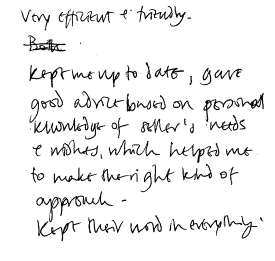 Very efficient & friendly.
Kept me up to date, gave
good advice based on personal
knowledge of seller's needs
& wishes, which helped me
to make the right kind of
approach -
Kept their word in everything.